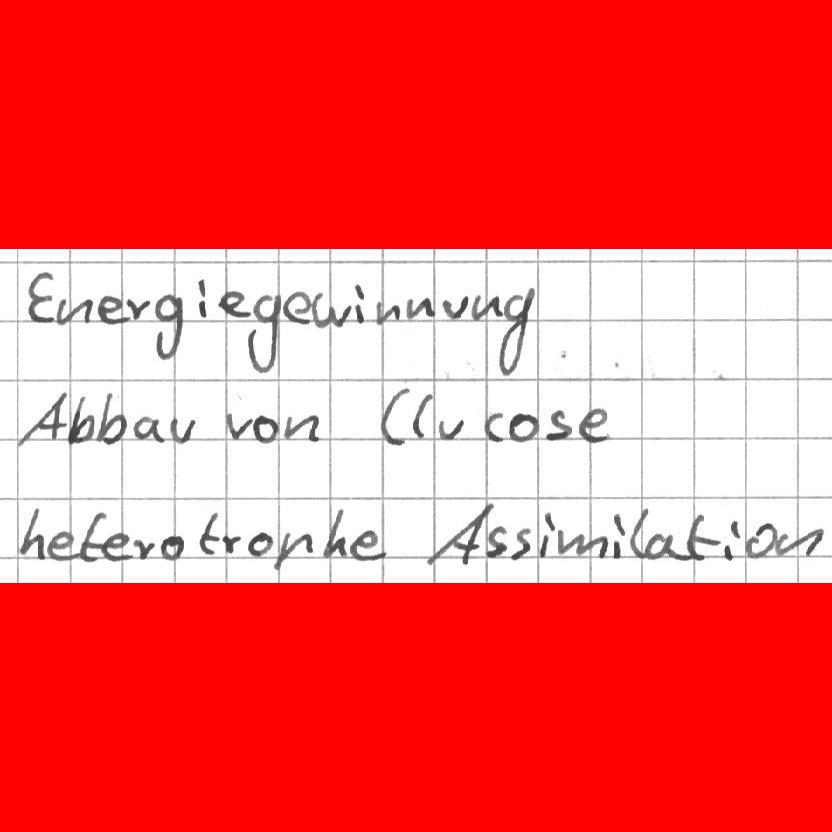 Energiegewinnung
Abbau von Glucose
heterotrophe Assimilation